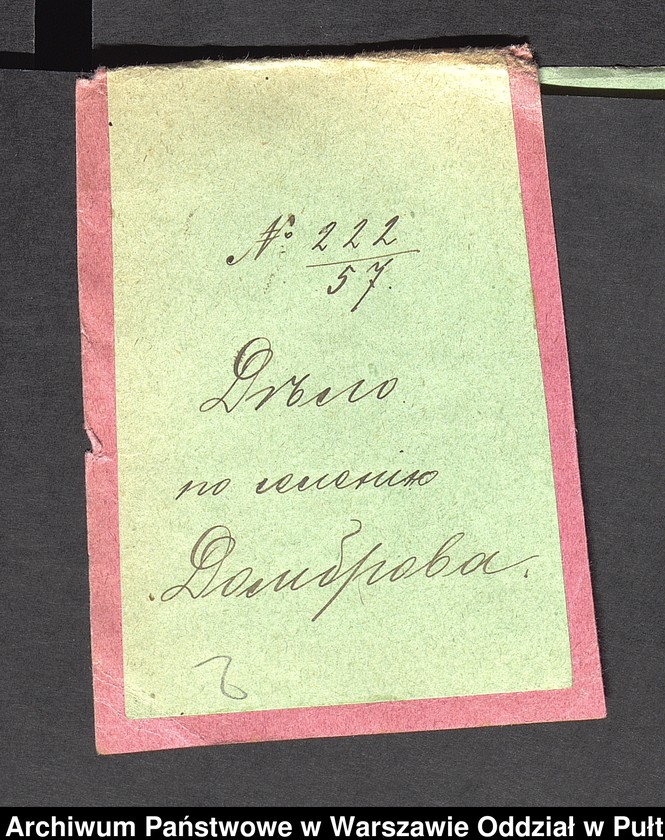 № 222
57.
Дѣло
по селенію
Домброва.
Archiwum Państwowe w Warszawie Oddział w Puł